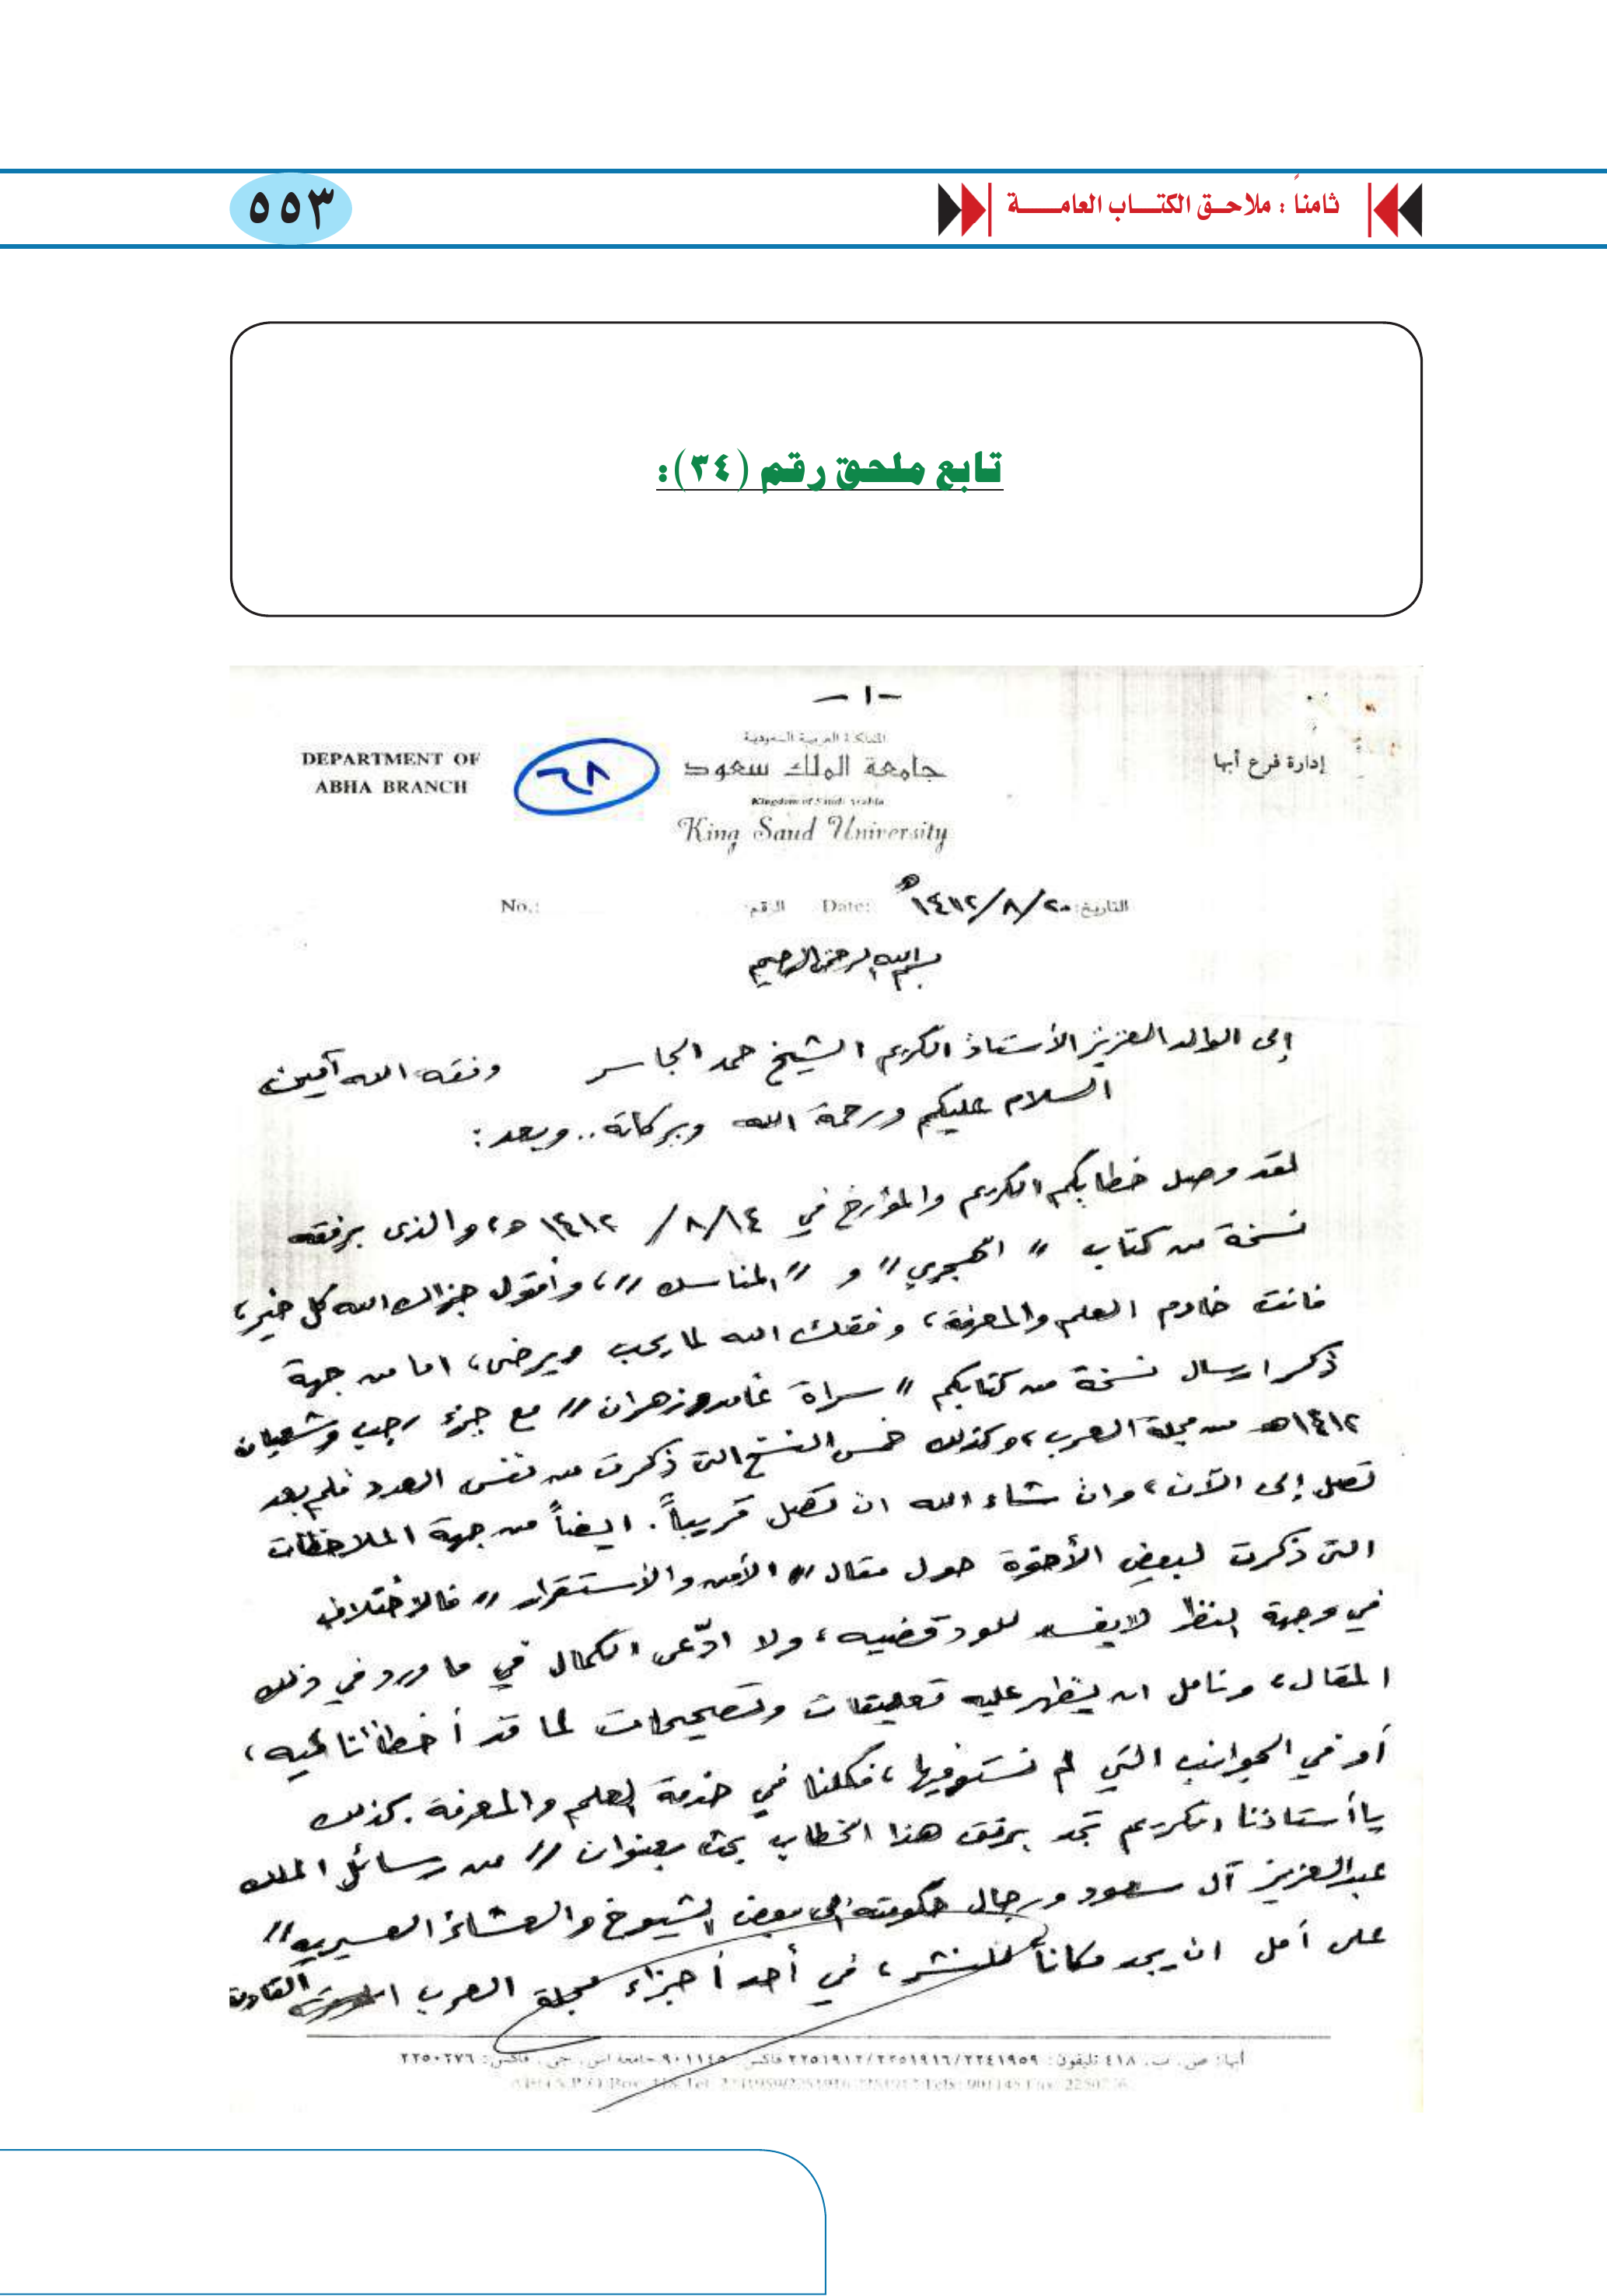 ثامناً : ملاحـق الكتـــاب العامـــــة
٥٥٣
تابع ملحق رقم (٣٤):
-١-
المملكة العربية السعودية
جامعة الملك سعود
Kingdom of Saudi Arabia
King Saud University
إدارة فرع أبها
DEPARTMENT OF
ABHA BRANCH
٦٨
التاريخ: ١٤١٢/٨/٢٠هـ Date: الرقم No.:
بسم الله الرحمن الرحيم
إلى الوالد العزيز الأستاذ الكريم الشيخ حمد الجاسر وفقه الله آمين
السلام عليكم ورحمة الله وبركاته .. وبعد :
لقد وصل خطابكم الكريم والمؤرخ في ١٤/ ٨/ ١٤١٢هـ، والذى برفقه
نسخة من كتاب "الهجري" و "المناسك"، وأقول جزاك الله كل خير،
فانت خادم العلم والمعرفة، وفقك الله لما يحب ويرضى، اما من جهة
ذكر ارسال نسخة من كتابكم "سراة غامد وزهران" مع جزء رجب وشعبان
١٤١٢هـ من مجلة العرب، وكذلك خمس النسخ التى ذكرت من نفس العدد فلم بعد
تصل إلى الآن، وان شاء الله ان تصل قريباً. ايضاً من جهة الملاحظات
التى ذكرت لبعض الأخوة حول مقال "الأمن والاستقرار" فالاختلاف
في وجهة النظر لا يفسد للود قضيه، ولا ادّعى الكمال في ما ورد في ذلك
المقال، ونامل ان يظهر عليه تعليقات وتصحيحات لما قد أخطائنا فيه،
أو في الجوانب التي لم نستوفيها، فكلنا في خدمة العلم والمعرفة. كذلك
يا أستاذنا الكريم تجد برفق هذا الخطاب بحث بعنوان "من رسائل الملك
عبدالعزيز آل سعود ورجال حكومته إلى بعض الشيوخ والعشائر العسيريه"
على أمل ان يجد مكاناً للنشر، في أحد أجزاء مجلة العرب القادمة
أبها: ص. ب. ٤١٨ تليفون: ٢٢٤١٩٥٩/٢٢٥١٩١٦/٢٢٥١٩١٢